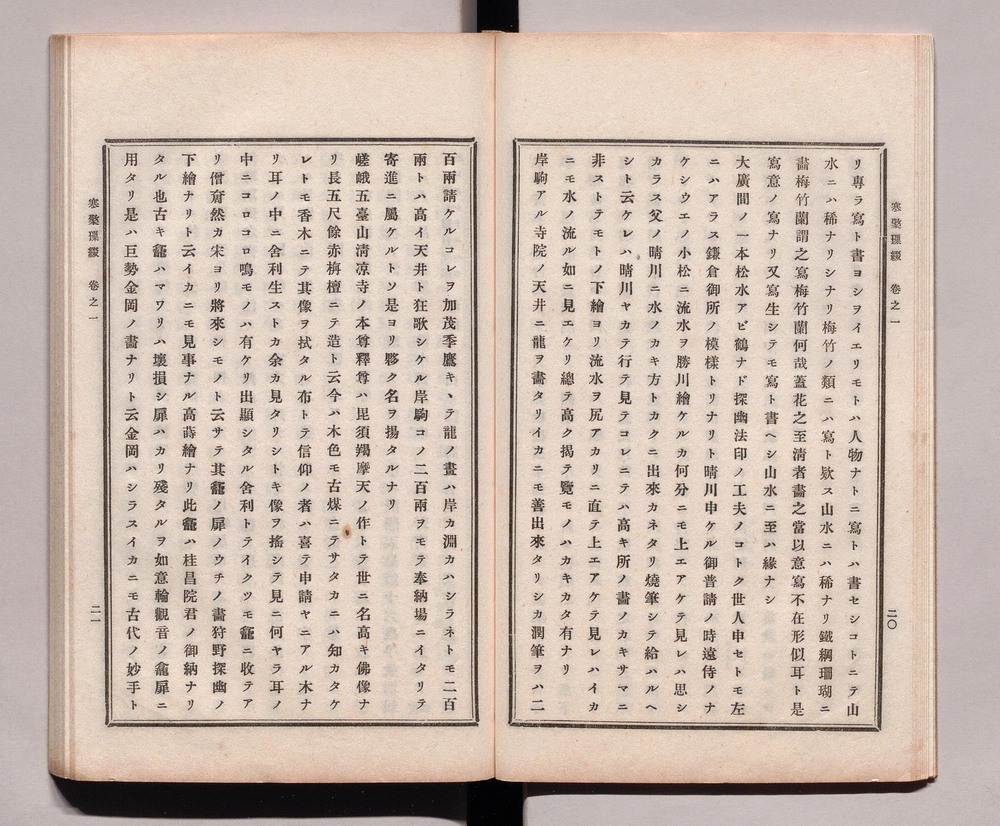 寒檠璅綴　卷之一
二〇
リ專ラ寫ト書ヨシヲイエリモトハ人物ナトニ寫トハ書セシコトニテ山
水ニハ稀ナリシナリ梅竹ノ類ニハ寫ト欵ス山水ニハ稀ナリ鐵綱珊瑚ニ
畵梅竹蘭謂之寫梅竹蘭何哉蓋花之至淸者畵之當以意寫不在形似耳ト是
寫意ノ寫ナリ又寫生シテモ寫ト書ヘシ山水ニ至ハ緣ナシ
大廣間ノ一本松水アビ鶴ナド探幽法印ノ工夫ノコトク世人申セトモ左
ニハアラス鎌倉御所ノ模樣トリナリト晴川申ケル御普請ノ時遠侍ノナ
ケシウエノ小松ニ流水ヲ勝川繪ケルカ何分ニモ上エアケテ見レハ思シ
カラス父ノ晴川ニ水ノカキ方トカクニ出來カネタリ燒筆シテ給ハルヘ
シト云ケレハ晴川ヤカテ行テ見テコレニテハ高キ所ノ畵ノカキサマニ
非ストテモトノ下繪ヨリ流水ヲ尻アカリニ直テ上エアケテ見レハイカ
ニモ水ノ流ル如ニ見エケリ總テ高ク揭テ覽モノハカキカタ有ナリ
岸駒アル寺院ノ天井ニ龍ヲ畵タリイカニモ善出來タリシカ潤筆ヲハ二
百兩請ケルコレヲ加茂季鷹キヽテ龍ノ畫ハ岸カ淵カハシラネトモ二百
兩トハ高イ天井ト狂歌シケル岸駒コノ二百兩ヲモテ奉納場ニイタリテ
寄進ニ屬ケルトソ是ヨリ夥ク名ヲ揚タルナリ
嵯峨五臺山淸凉寺ノ本尊釋尊ハ毘須羯摩天ノ作トテ世ニ名高キ佛像ナ
リ長五尺餘赤栴檀ニテ造ト云今ハ木色モ古煤ニテサタカニハ知カタケ
レトモ香木ニテ其像ヲ拭タル布トテ信仰ノ者ハ喜テ申請ヤニアル木ナ
リ耳ノ中ニ舍利生ストカ余カ見タリシトキ像ヲ搖シテ見ニ何ヤラ耳ノ
中ニコロコロ鳴モノハ有ケリ出顯シタル舍利トテイクツモ龕ニ收テア
リ僧奝然カ宋ヨリ將來シモノト云サテ其龕ノ扉ノウチノ畵狩野探幽ノ
下繪ナリト云イカニモ見事ナル高蒔繪ナリ此龕ハ桂昌院君ノ御納ナリ
タル也古キ龕ハマワリハ壞損シ扉ハカリ殘タルヲ如意輪觀音ノ龕扉ニ
用タリ是ハ巨勢金岡ノ畵ナリト云金岡ハシラスイカニモ古代ノ妙手ト
寒檠璅綴　卷之一
二一